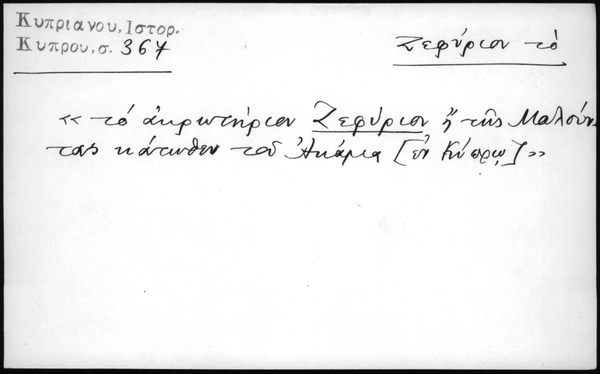 Κυπριανου, Ιστορ.
Κυπρου, σ. 367
Ζεφύριον τὸ
« τὸ ἀκρωτήριον Ζεφύριον ἢ τῆς Μαλούν-
τας κάτωθεν τοῦ Ἀκάμα [ἐν Κύπρῳ] »